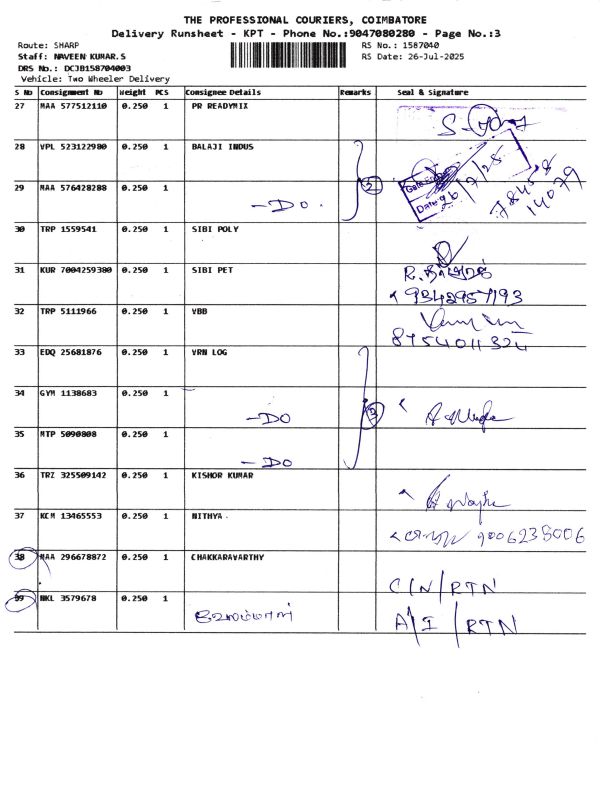 THE PROFESSIONAL COURIERS, COIMBATORE
Delivery Runsheet - KPT - Phone No.:9047080280 - Page No.:3
Route: SHARP
RS No.: 1587040
Staff: NAVEEN KUMAR.S
RS Date: 26-Jul-2025
DRS No.: DCJB158704003
Vehicle: Two Wheeler Delivery
S No Consignment No Weight PCS Consignee Details Remarks Seal & Signature
27 MAA 577512110 0.250 1 PR READYMIX
28 VPL 523122980 0.250 1 BALAJI INDUS
29 MAA 576428288 0.250 1 -DO.
30 TRP 1559541 0.250 1 SIBI POLY
31 KUR 7004259380 0.250 1 SIBI PET
9342957193
32 TRP 5111966 0.250 1 VBB
8754011324
33 EDQ 25681876 0.250 1 VRN LOG
34 GYM 1138683 0.250 1 -DO
35 MTP 5090808 0.250 1 -DO
36 TRZ 325509142 0.250 1 KISHOR KUMAR
37 KCM 13465553 0.250 1 NITHYA 9006238006
38 MAA 296678872 0.250 1 CHAKKARAVARTHY C/N/RTN
39 NKL 3579678 0.250 1 A/I/RTN